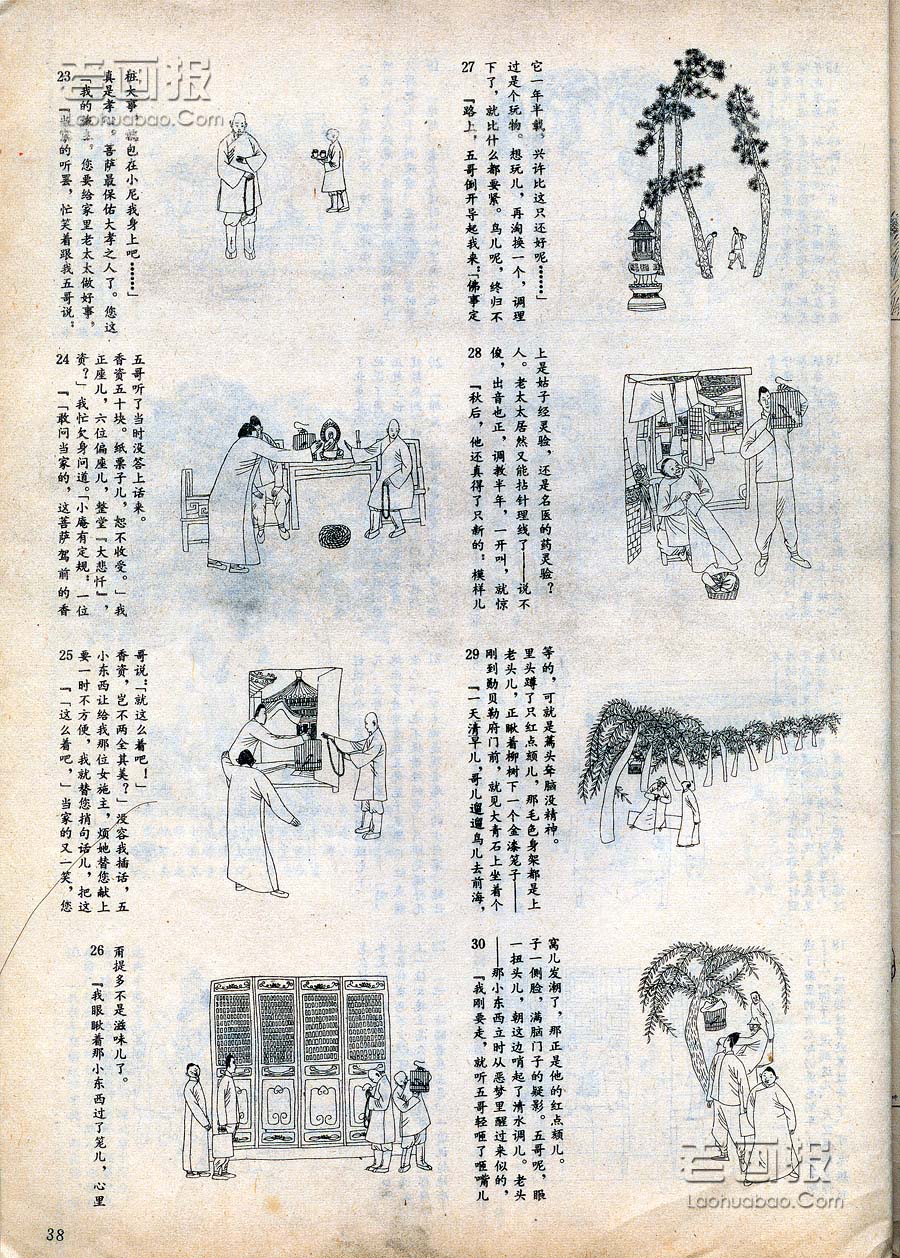 老画报
Laohuabao.Com
23 『当家的听罢，忙笑着跟我五哥说：
「我的施主，您要给家里老太太做好事，
真是孝心。菩萨最保佑大孝之人了。您这
桩大事，就包在小尼我身上吧……」
24 『「敢问当家的，这菩萨驾前的香
资？」我忙欠身问道。「小庵有定规：一位
正座儿，六位偏座儿，整堂『大悲忏』，
香资五十块。纸票子儿，恕不收受。」我
五哥听了当时没答上话来。
25 『「这么着吧，」当家的又一笑，您
要一时不方便，我就替您捎句话儿，把这
小东西让给我那位女施主，烦她替您献上
香资，岂不两全其美？」没容我插话，五
哥说：「就这么着吧！」
26 『我眼瞅着那小东西过了笼儿，心里
甭提多不是滋味儿了。
27 『路上，五哥倒开导起我来：「佛事定
下了，就比什么都要紧。鸟儿呢，终归不
过是个玩物。想玩儿，再淘换一个，调理
它一年半载，兴许比这只还好呢……」
28 『秋后，他还真得了只新的：模样儿
俊，出音也正，调教半年，一开叫，就惊
人。老太太居然又能拈针理线了——说不
上是姑子经灵验，还是名医的药灵验？
29 『一天清早儿，哥儿遛遛鸟儿去前海，
刚到勤贝勒府门前，就见大青石上坐着个
老头儿，正瞅着柳树下一个金漆笼子——
里头蹲了只红点颏儿，那毛色身架都是上
等的，可就是蔫头耷脑没精神。
30 『我刚要走，就听五哥轻咂了咂嘴儿
——那小东西立时从恶梦里醒过来似的，
一扭头儿，朝这边哨起了清水调儿。老头
子一侧脸，满脑门子的疑影。五哥呢，眼
窝儿发潮了，那正是他的红点颏儿。
38
老画报
Laohuabao.Com